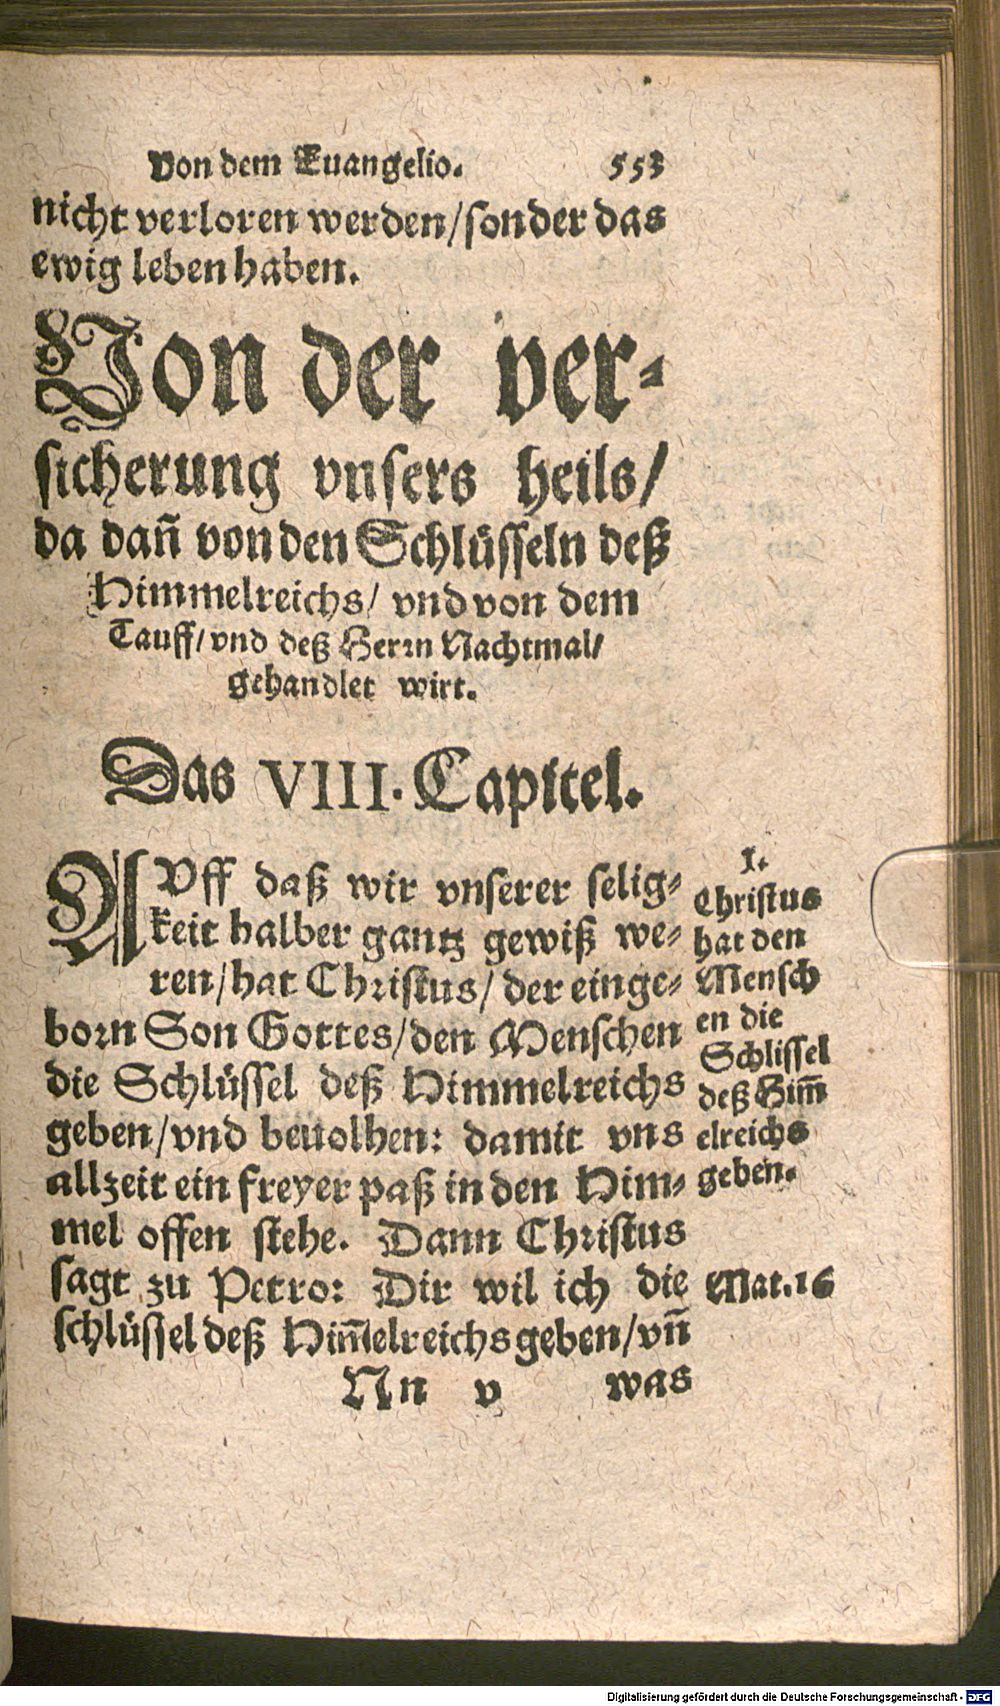 Von dem Euangelio. 553
nicht verloren werden/sonder das
ewig leben haben.
Von der ver-
sicherung vnsers heils/
da dañ von den Schlüsseln deß
Himmelreichs/ vnd von dem
Tauff/vnd deß Herrn Nachtmal/
gehandlet wirt.
Das VIII. Capitel.
AVff daß wir vnserer selig-
keit halber gantz gewiß we-
ren/hat Christus/ der einge-
born Son Gottes/den Menschen
die Schlüssel deß Himmelreichs
geben/vnd beuolhen: damit vns
allzeit ein freyer paß in den Him-
mel offen stehe. Dann Christus
sagt zu Petro: Dir wil ich die
schlüssel deß Him̃elreichs geben/vñ
Nn v was
1.
Christus
hat den
Mensch
en die
Schlissel
deß Him̃
elreichs
geben.
Mat.16
Digitalisierung gefördert durch die Deutsche Forschungsgemeinschaft - DFG